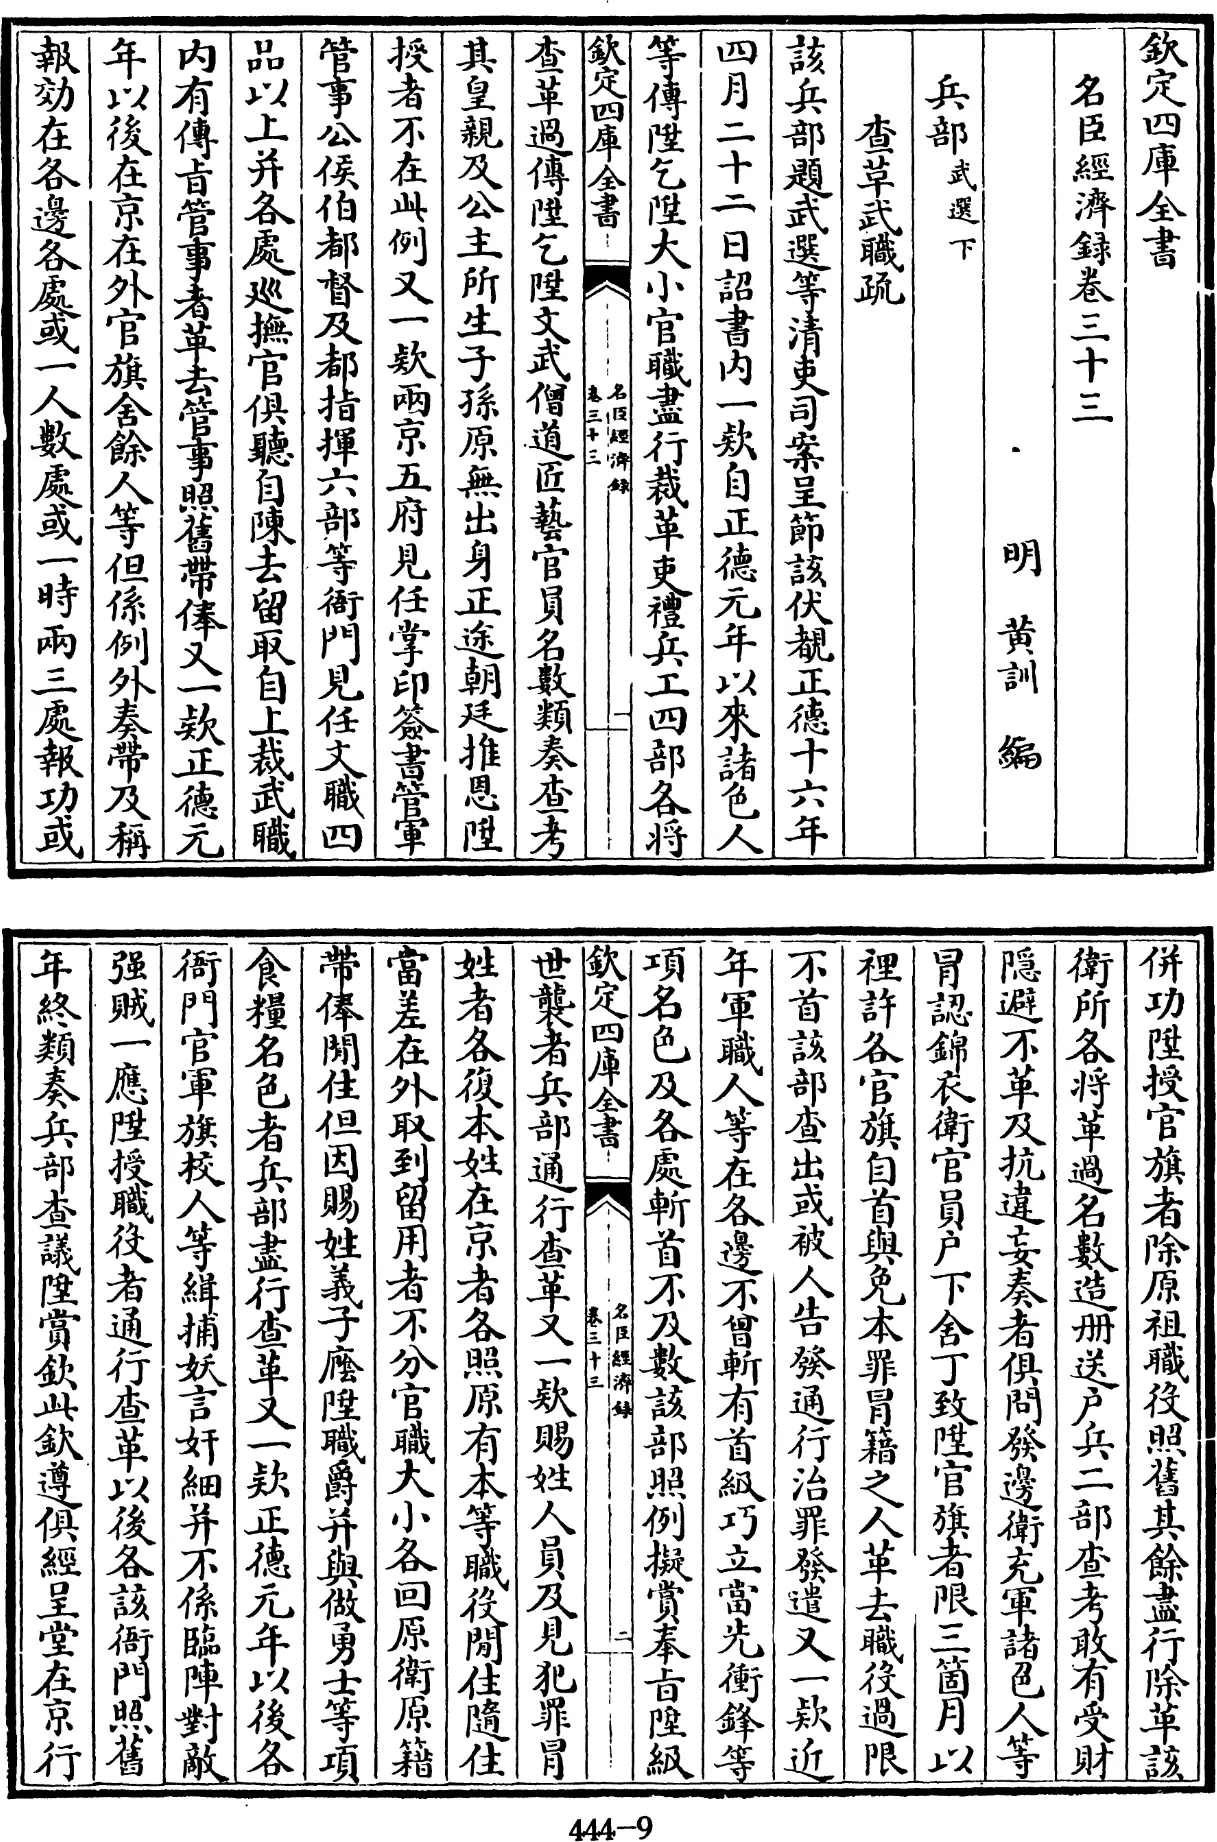 欽定四庫全書
名臣經濟録卷三十三
明　黄訓　編
兵部武選下
查革武職疏
該兵部題武選等清吏司案呈節該伏覩正德十六年
四月二十二日詔書内一欵自正德元年以來諸色人
等傳陞乞陞大小官職盡行裁革吏禮兵工四部各將
欽定四庫全書
名臣經濟録
卷三十三
一
查革過傳陞乞陞文武僧道匠藝官員名數類奏查考
其皇親及公主所生子孫原無出身正途朝廷推恩陞
授者不在此例又一欵兩京五府見任掌印簽書管軍
管事公侯伯都督及都指揮六部等衙門見任文職四
品以上并各處巡撫官俱聽自陳去留取自上裁武職
内有傳㫖管事者革去管事照舊帶俸又一欵正德元
年以後在京在外官旗舍餘人等但係例外奏帶及稱
報効在各邊各處或一人數處或一時兩三處報功或
併功陞授官旗者除原祖職役照舊其餘盡行除革該
衛所各將革過名數造册送户兵二部查考敢有受財
隱避不革及抗違妄奏者俱問發邊衛充軍諸色人等
冒認錦衣衛官員户下舍丁致陞官旗者限三箇月以
裡許各官旗自首與免本罪冒籍之人革去職役過限
不首該部查出或被人告發通行治罪發遣又一欵近
年軍職人等在各邊不曾斬有首級巧立當先衝鋒等
項名色及各處斬首不及數該部照例擬賞奉㫖陞級
欽定四庫全書
名臣經濟録
卷三十三
二
世襲者兵部通行查革又一欵賜姓人員及見犯罪冒
姓者各復本姓在京者各照原有本等職役閒住隨住
當差在外取到留用者不分官職大小各回原衛原籍
帶俸閒住但因賜姓義子廕陞職爵并與做勇士等項
食糧名色者兵部盡行查革又一欵正德元年以後各
衙門官軍旗校人等緝捕妖言奸細并不係臨陣對敵
强賊一應陞授職役者通行查革以後各該衙門照舊
年終類奏兵部查議陞賞欽此欽遵俱經呈堂在京行
444-9